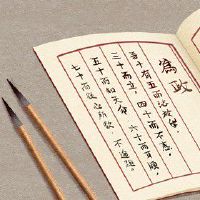 為政
吾十有五而志於學,
三十而立,四十而不惑,
五十而知天命,六十而耳順,
七十而從心所欲,不逾矩。